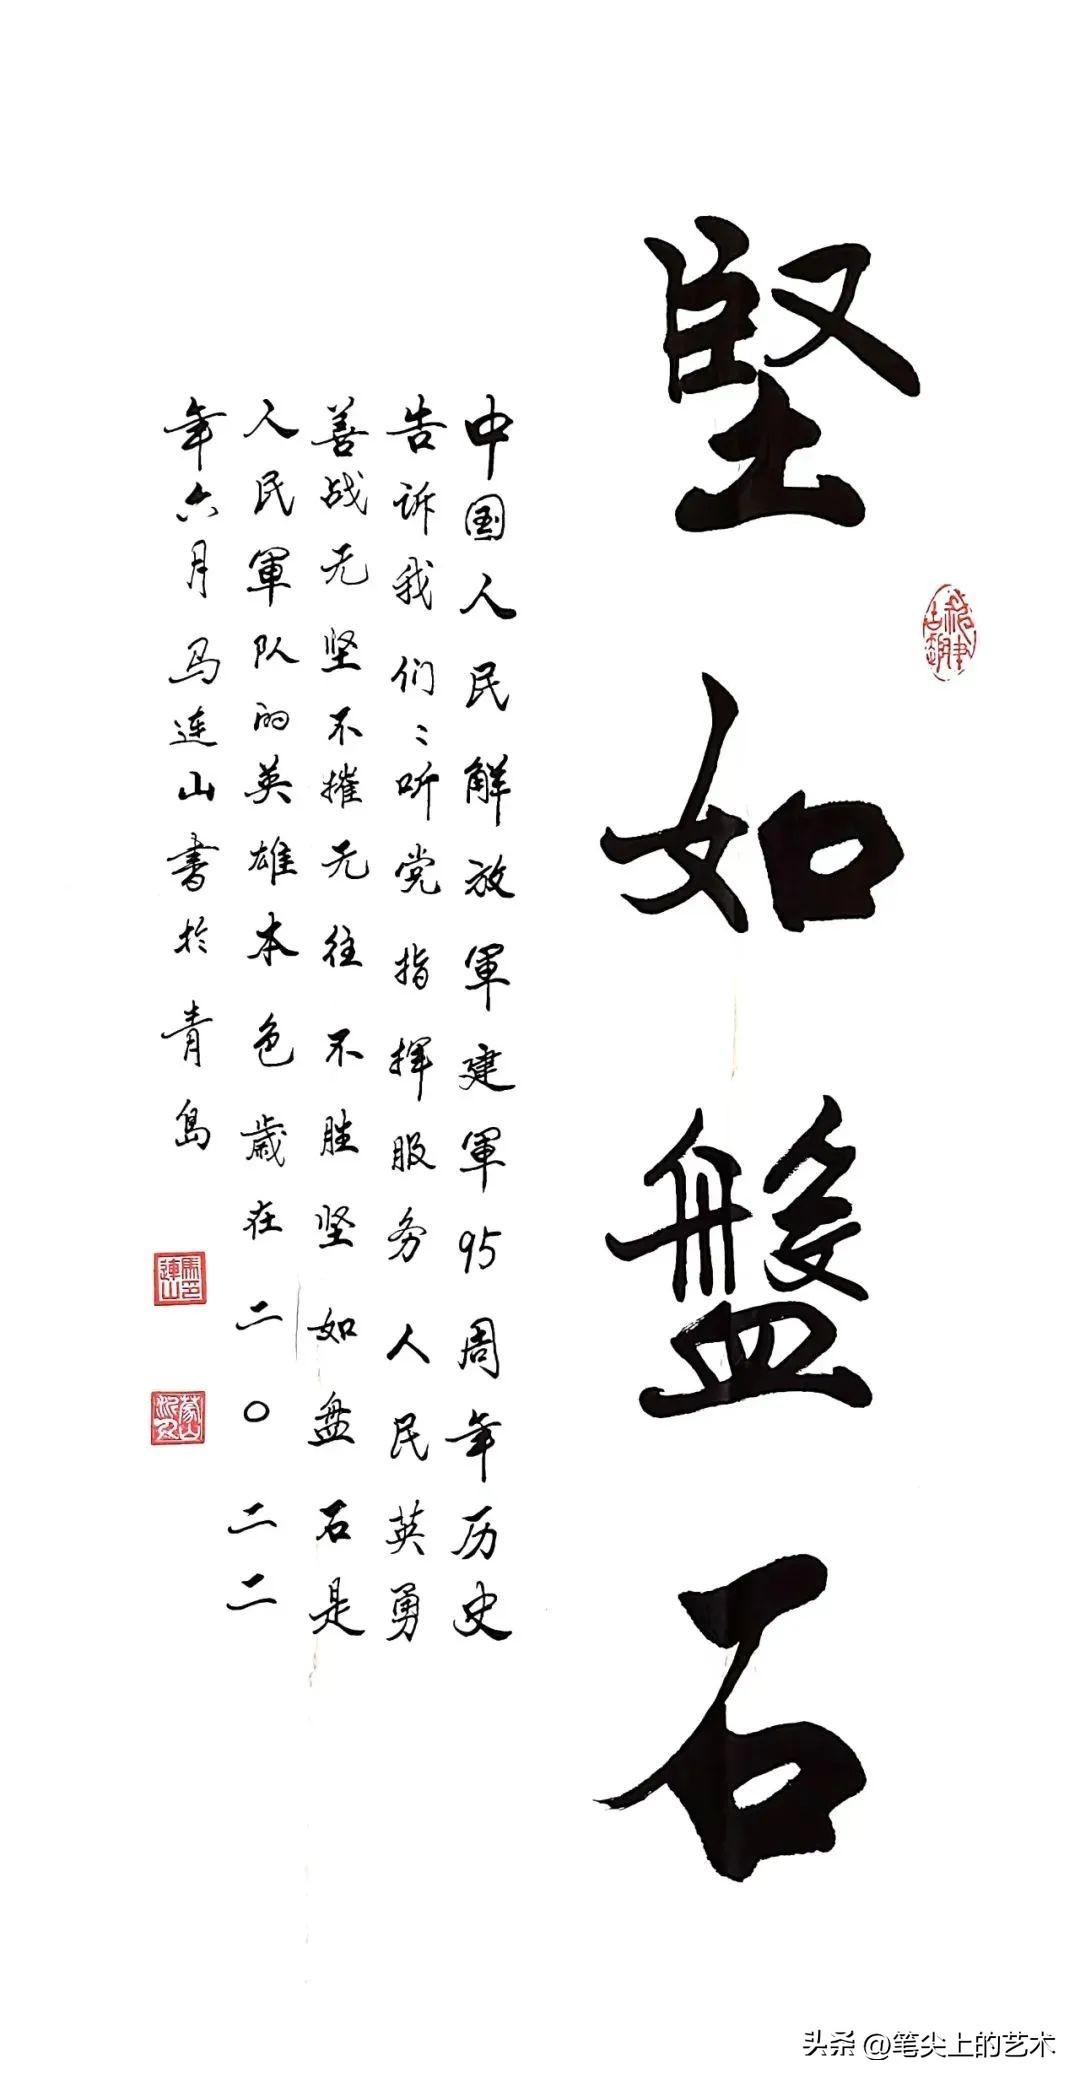 堅如盤石
中国人民解放軍建軍95周年历史
告诉我们:听党指揮服务人民英勇
善战无坚不摧无往不胜坚如盘石是
人民軍队的英雄本色歲在二〇二二
年六月马连山書於青島
馬連山印
蒙山沂水
头条@笔尖上的艺术